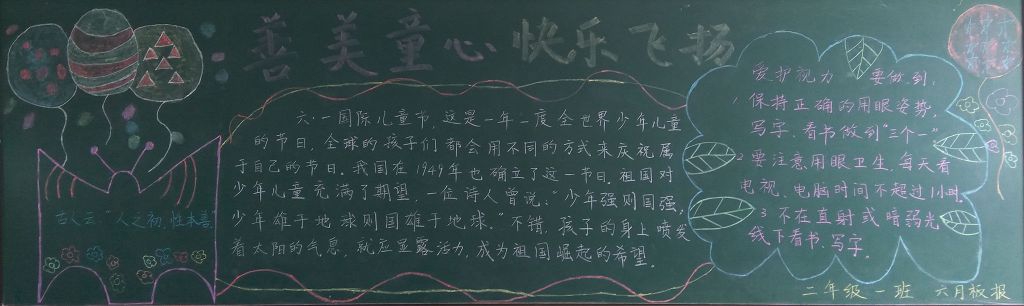 善美童心 快乐飞扬
古人云:“人之初,性本善
六·一国际儿童节,这是一年一度全世界少年儿童
的节日,全球的孩子们都会用不同的方式来庆祝属
于自己的节日。我国在1949年也确立了这一节日。祖国对
少年儿童充满了期望,一位诗人曾说:“少年强则国强,
少年雄于地球则国雄于地球。”不错,孩子的身上喷发
着太阳的气息,就应显露活力,成为祖国崛起的希望。
爱护视力 要做到:
1 保持正确的用眼姿势,
写字、看书做到“三个一”
2 要注意用眼卫生,每天看
电视、电脑时间不超过1小时。
3 不在直射或暗弱光
线下看书、写字。
二年级一班 六月板报